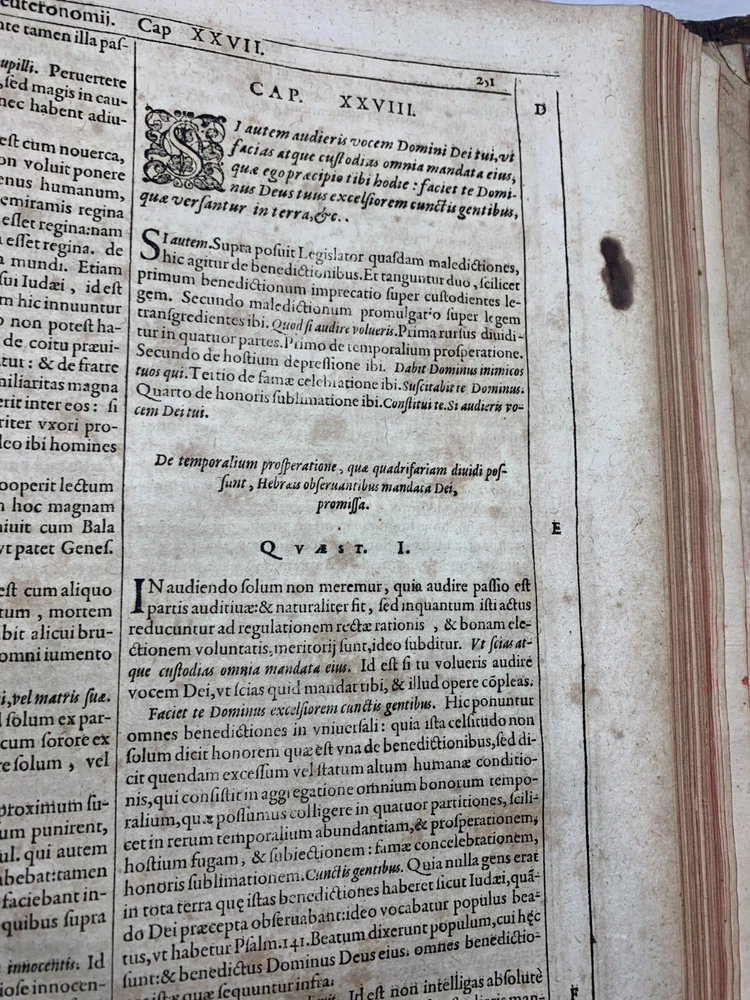 Cap XXVII.
te tamen illa paſ-
upilli. Peruertere
,ſed magis in cau-
nec habent adiu-
eſt cum nouerca,
on voluit ponere
enus humanum,
emiramis regina
eſſet regina: nam
a eſſet regina. de
a mundi. Etiam
ſui Iudæi, id eſt
m hic innuuntur
o non poteſt ha-
de coitu præui-
tur: & de fratre
niliaritas magna
erit inter eos: ſi
riter vxori pro-
deo ibi homines
ooperit lectum
n hoc magnam
niuit cum Bala
vt patet Geneſ.
eſt cum aliquo
tum, mortem
bit alicui bru-
omni iumento
i, vel matris ſuæ.
d ſolum ex par-
cum ſorore ex
re ſolum, vel
proximum ſu-
um punirent,
ul. qui autem
abebat: tamen
faciebant in-
quibus ſupra
innocentis. Id
ioſe innocen-
291
CAP. XXVIII.
D
SI autem audieris vocem Domini Dei tui, vt
facias atque cuſtodias omnia mandata eius,
quæ ego præcipio tibi hodie: faciet te Domi-
nus Deus tuus excelſiorem cunctis gentibus,
quæ verſantur in terra, &c..
SI autem. Supra poſuit Legislator quaſdam maledictiones,
hic agitur de benedictionibus. Et tanguntur duo, ſcilicet
primum benedictionum imprecatio ſuper cuſtodientes le-
gem. Secundo maledictionum promulgatio ſuper legem
tranſgredientes ibi. Quod ſi audire volueris. Prima rurſus diuidi-
tur in quatuor partes. Primo de temporalium proſperatione.
Secundo de hoſtium depreſſione ibi. Dabit Dominus inimicos
tuos qui. Tertio de famæ celebratione ibi. Suſcitabit te Dominus.
Quarto de honoris ſublimatione ibi. Conſtitui te. Si audieris vo-
cem Dei tui.
De temporalium proſperatione, quæ quadrifariam diuidi poſ-
ſunt, Hebræis obſeruantibus mandata Dei,
promiſſa.
E
QVÆST. I.
IN audiendo ſolum non meremur, quia audire paſſio eſt
partis auditiuæ: & naturaliter fit, ſed inquantum iſti actus
reducuntur ad regulationem rectæ rationis, & bonam ele-
ctionem voluntatis, meritorij ſunt, ideo ſubditur. Vt ſcias at-
que cuſtodias omnia mandata eius. Id eſt ſi tu volueris audire
vocem Dei, vt ſcias quid mandat tibi, & illud opere cõpleas.
Faciet te Dominus excelſiorem cunctis gentibus. Hic ponuntur
omnes benedictiones in vniuerſali: quia iſta celſitudo non
ſolum dicit honorem quæ eſt vna de benedictionibus, ſed di-
cit quendam exceſſum vel ſtatum altum humanæ conditio-
nis, qui conſiſtit in aggregatione omnium bonorum tempo-
ralium, quæ poſſumus colligere in quatuor partitiones, ſcili-
cet in rerum temporalium abundantiam, & proſperationem,
hoſtium fugam, & ſubiectionem: famæ concelebrationem,
honoris ſublimationem. Cunctis gentibus. Quia nulla gens erat
in tota terra quę iſtas benedictiones haberet ſicut Iudæi, quã-
do Dei præcepta obſeruabant: ideo vocabatur populus bea-
tus, vt habetur Pſalm. 141. Beatum dixerunt populum, cui hęc
ſunt: & benedictus Dominus Deus eius. omnes benedictio-
quæ ſequuntur infra.
Id eſt non intelligas abſolutè
F